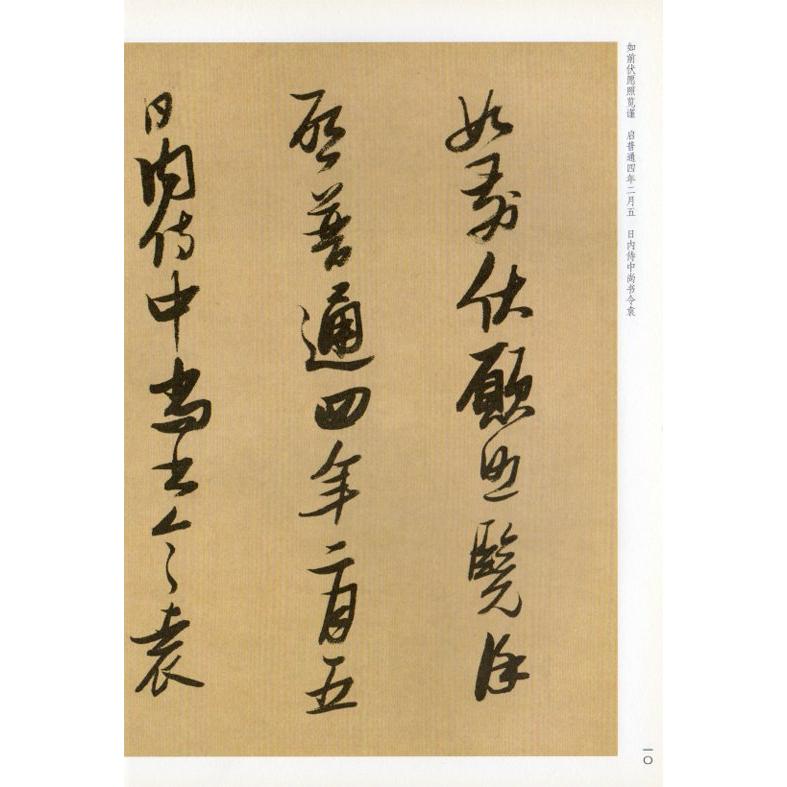 如前伏愿照览谨 启普通四年二月五 日内侍中尚书令袁
如前伏願照覽謹
啓普通四年二月五
日内侍中尚書令袁
一〇